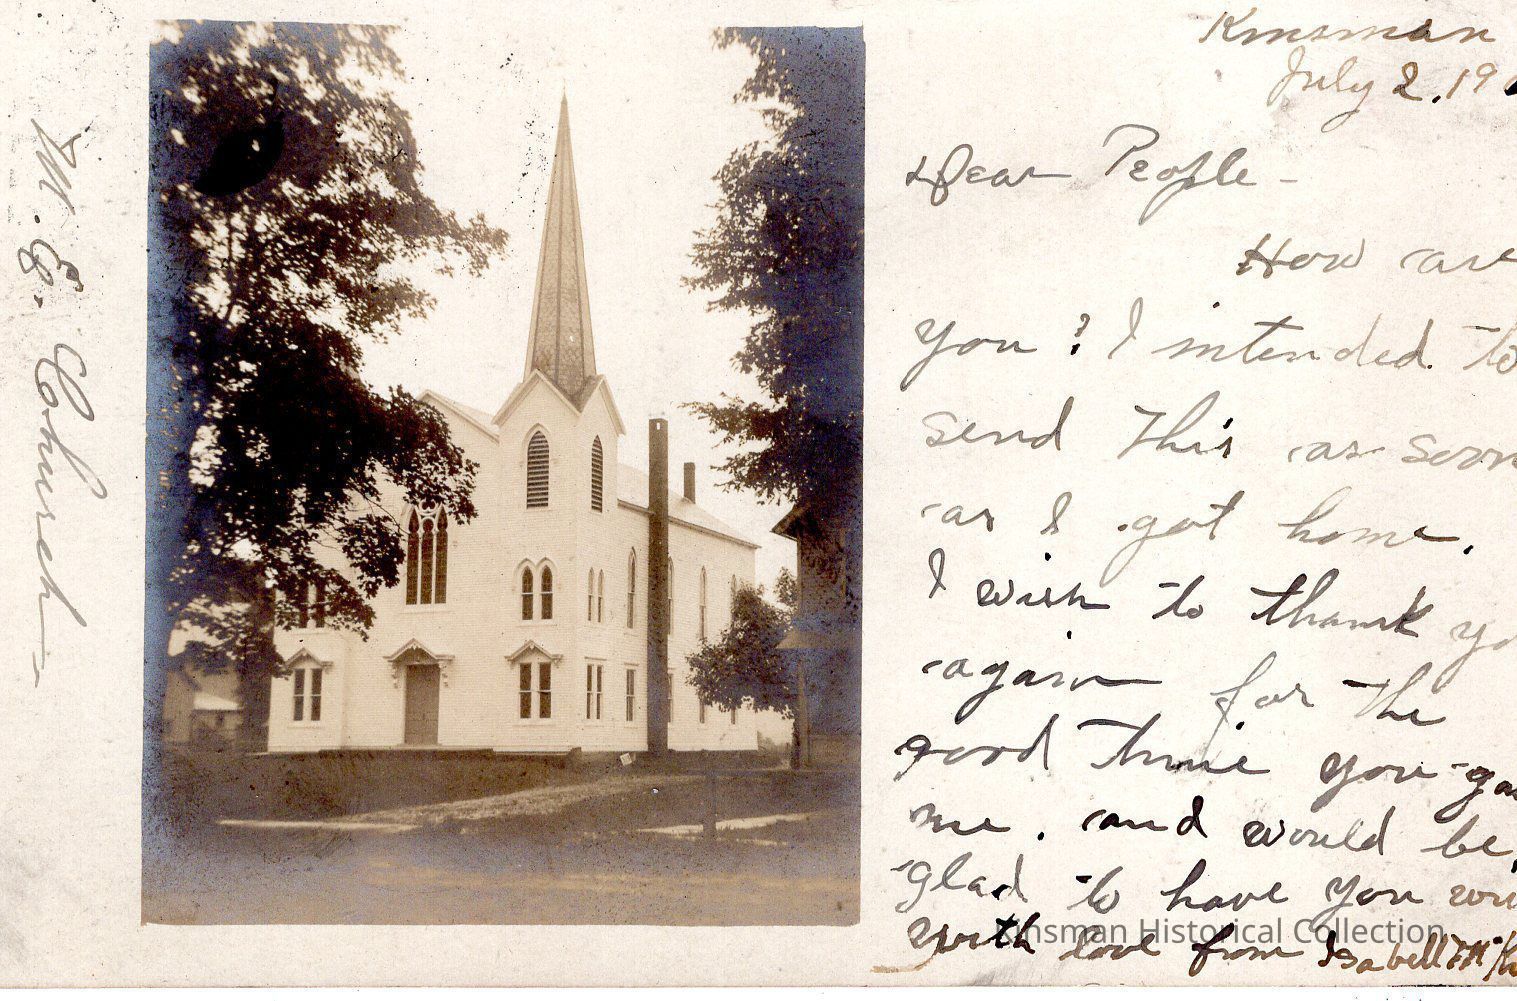 M. E. Church
Kinsman
July 2, 19
Dear People -
How are
you? I intended to
send this as soon
as I got home.
I wish to thank yo
again for the
good time you ga
me. and would be
glad to have you wri
With love from Isabell
Kinsman Historical Collection